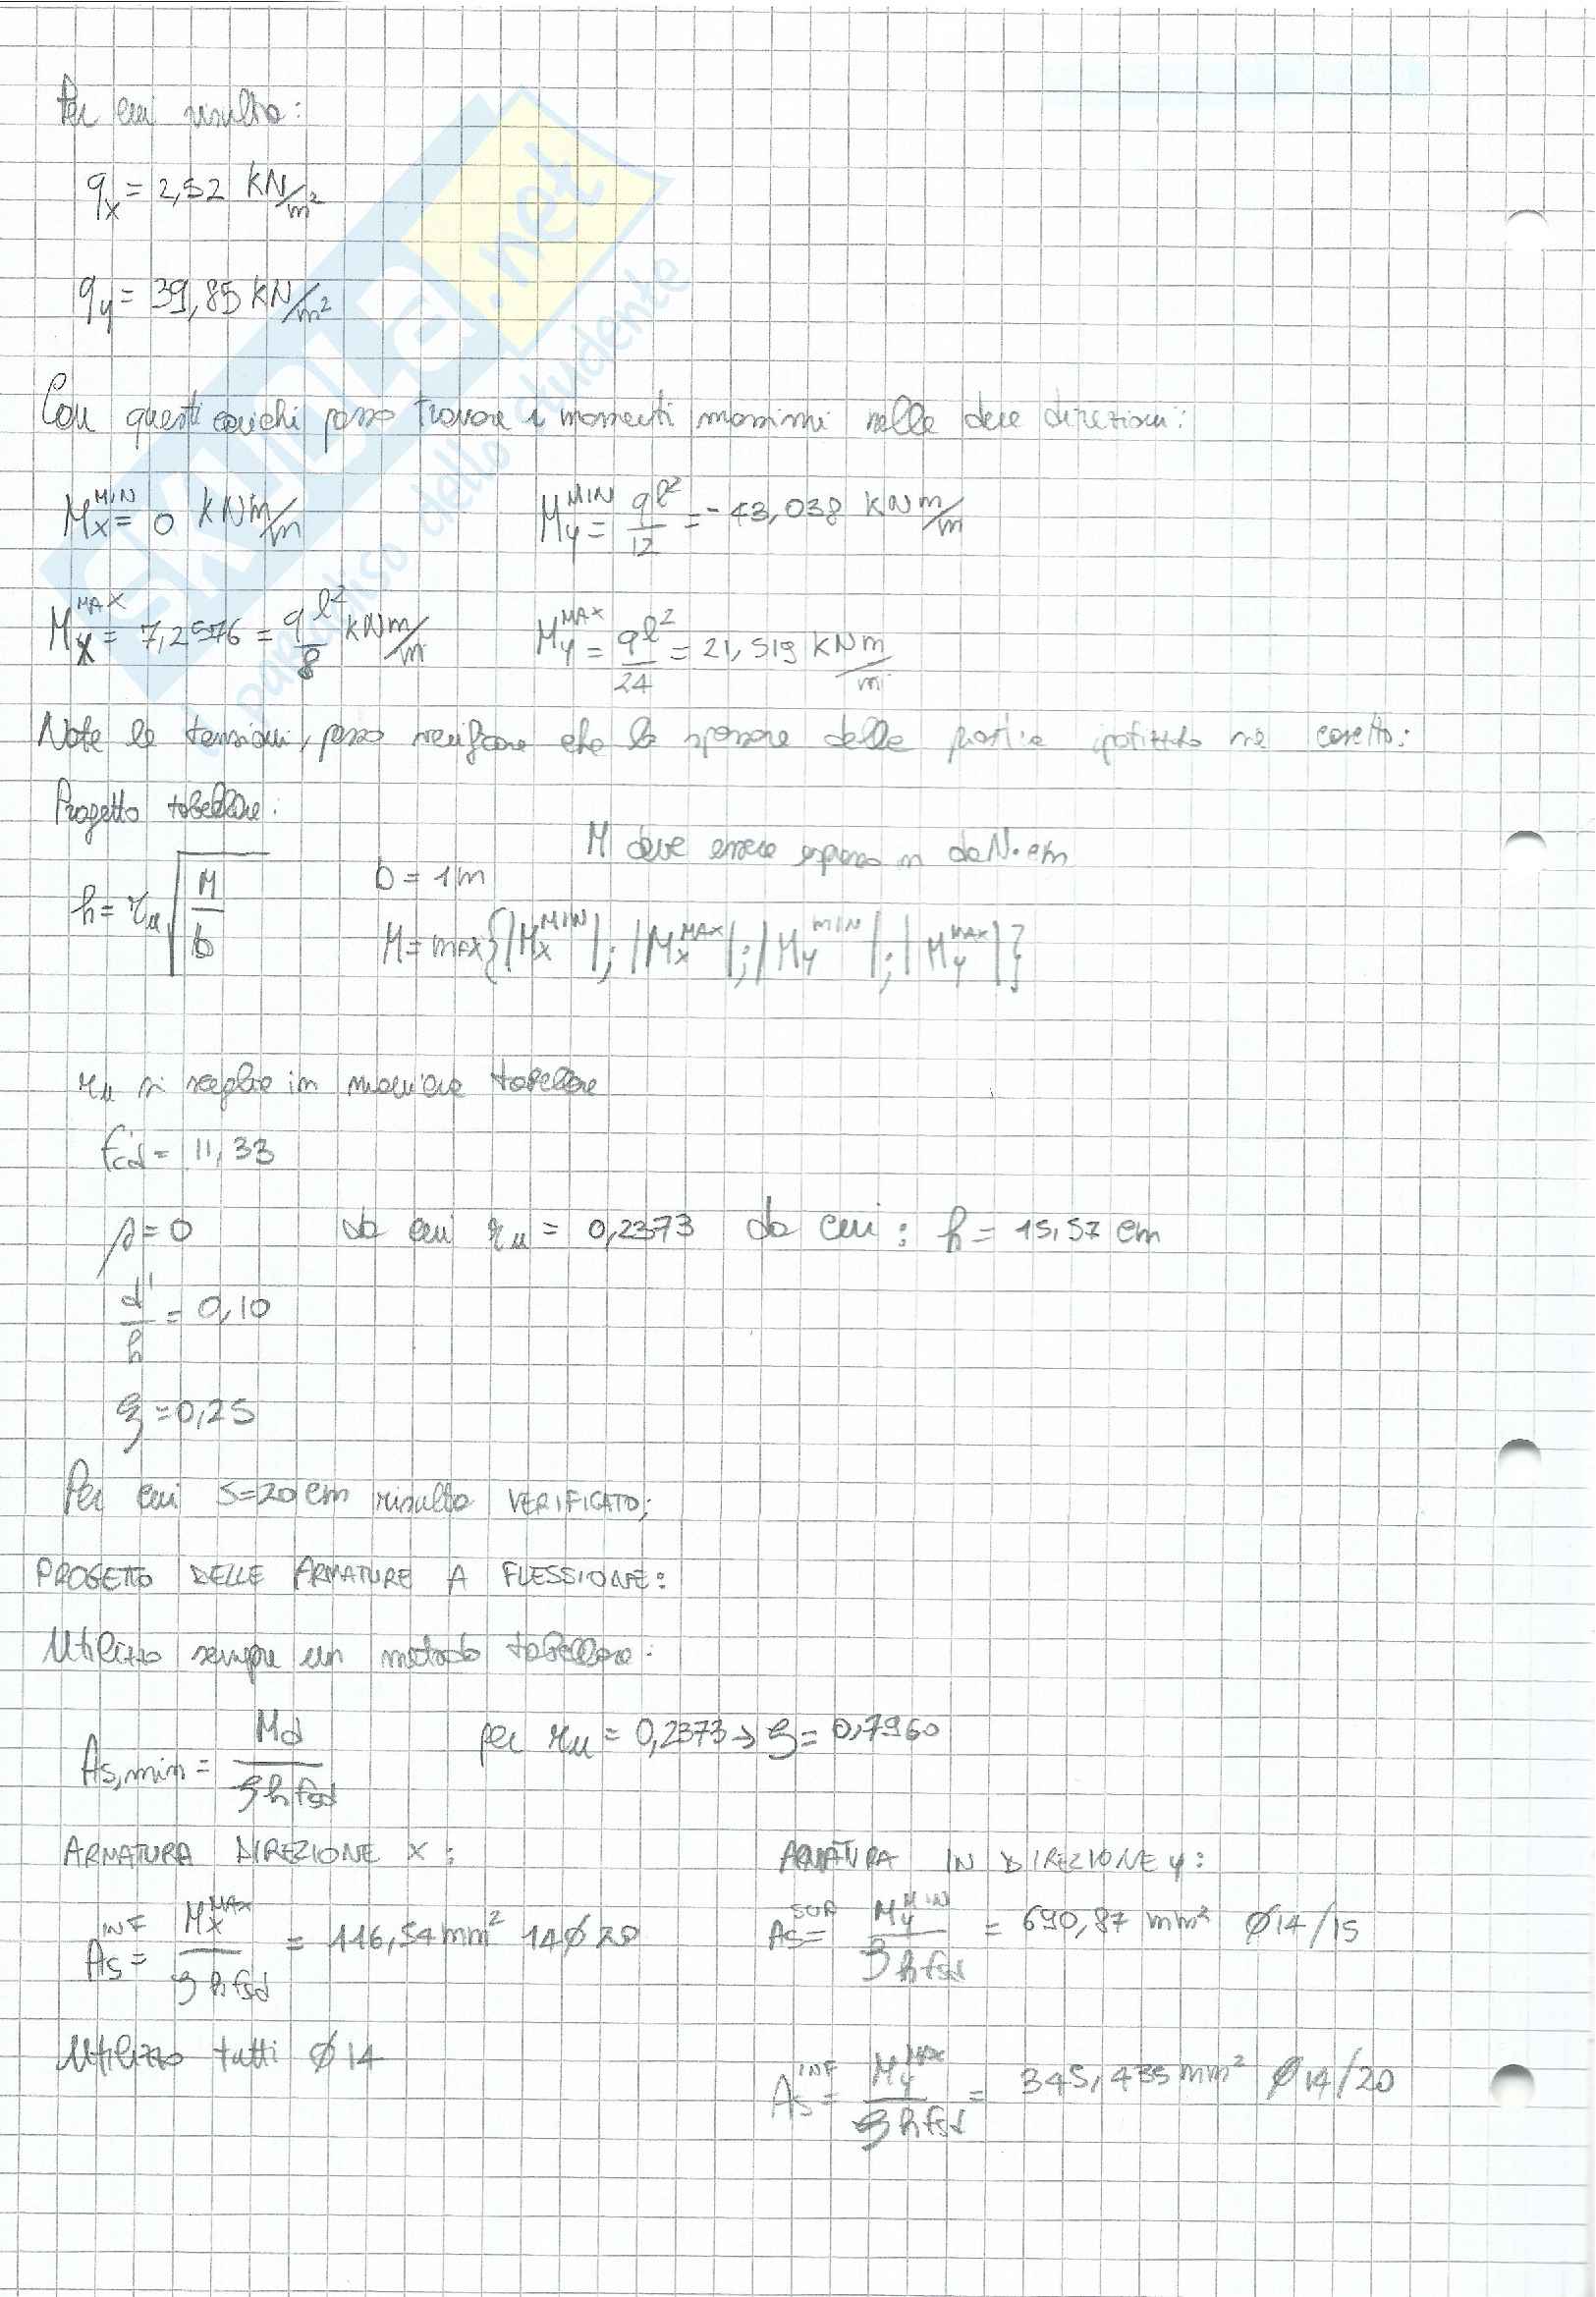 Per cui risulta:
qx = 2,52 kN/m²
qy = 39,85 kN/m²
Con questi carichi posso trovare i momenti massimi nelle due direzioni:
Mx^MIN = 0 kNm/m    My^MIN = ql²/12 = -43,038 kNm/m
Mx^MAX = 7,2576 = ql²/8 kNm/m    My^MAX = ql²/24 = 21,519 kNm/m
Note le tensioni, posso verificare che lo spessore della piastra ipotizzato sia corretto:
Progetto tabellare:
M deve essere espresso in daN·cm
h = ru √(M/b)    b = 1m
M = max{|Mx^MIN|; |Mx^MAX|; |My^MIN|; |My^MAX|}
ru si sceglie in maniera tabellare
fcd = 11,33
ρ = 0    da cui ru = 0,2373    da cui: h = 15,57 cm
d'/h = 0,10
ξ = 0,25
Per cui s=20cm risulta VERIFICATO;
PROGETTO DELLE ARMATURE A FLESSIONE:
Utilizzo sempre un metodo tabellare:
As,min = Md/(ζ h fsd)    per ru = 0,2373 → ζ = 0,7960
ARMATURA DIREZIONE X:    ARMATURA IN DIREZIONE Y:
As^INF = Mx^MAX/(ζ h fsd) = 116,54 mm² 14∅20    As^SUP = My^MIN/(ζ h fsd) = 690,87 mm² ∅14/15
Utilizzo tutti ∅14    As^INF = My^MAX/(ζ h fsd) = 345,435 mm² ∅14/20
SKUOLA.net
il paradiso dello studente